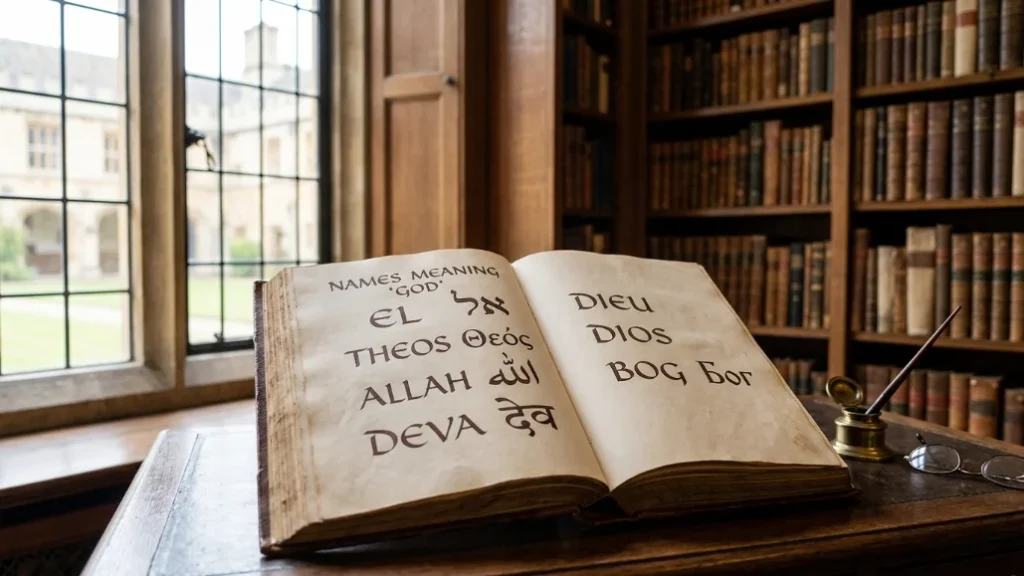 NAMES MEANING
'GOD'
EL אל
THEOS Θεός
ALLAH الله
DEVA देव
DIEU
DIOS
BOG Бог